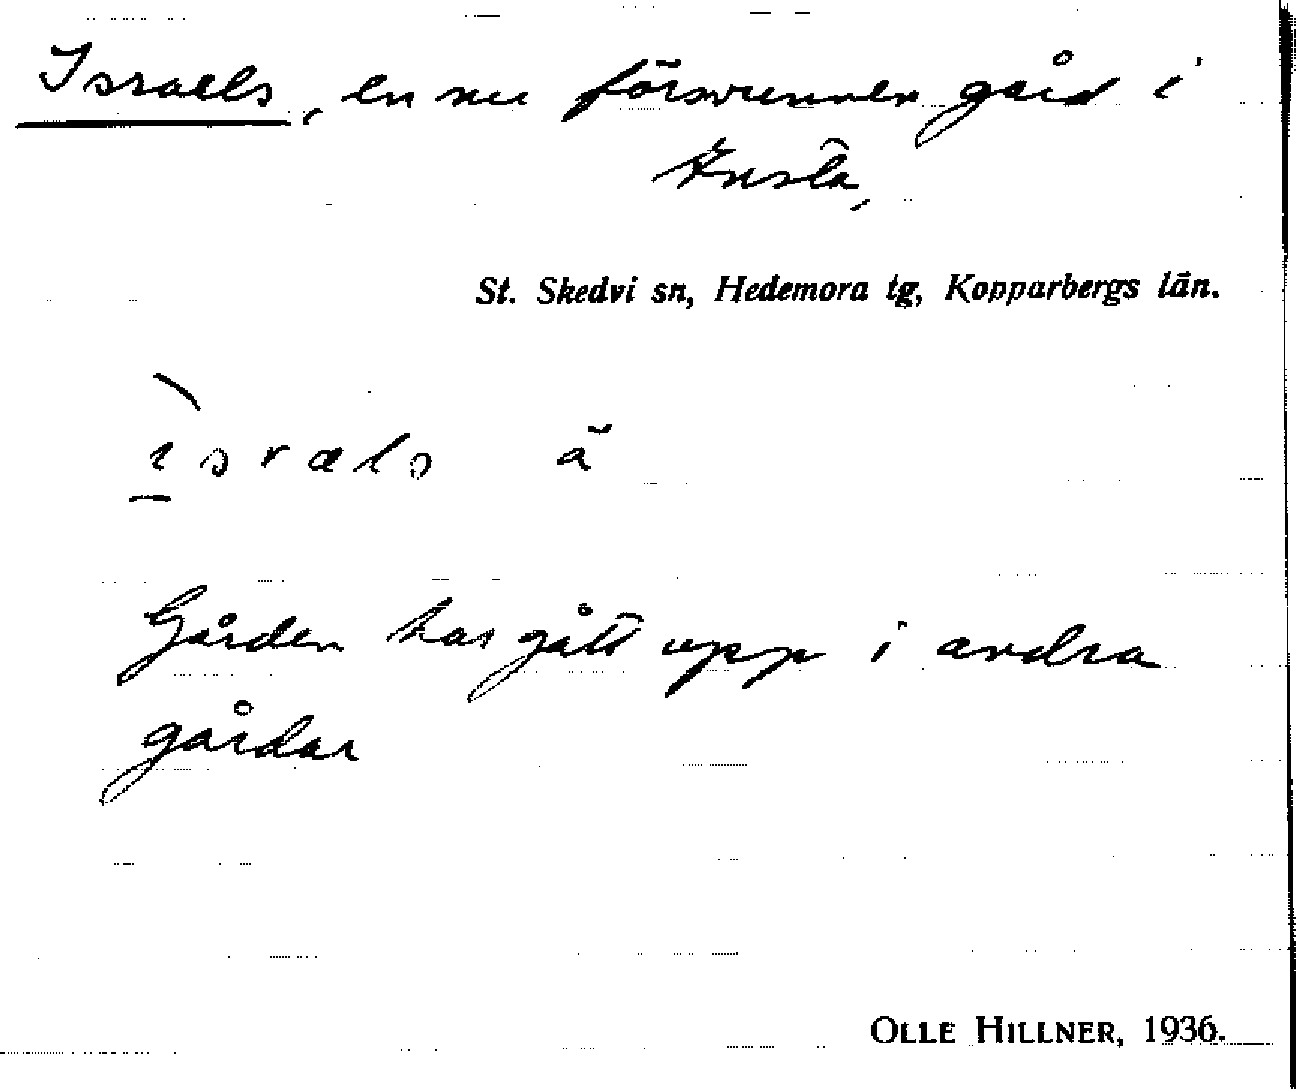 Israels, en nu försvunnen gård i
Knsta,
St. Skedvi sn, Hedemora tg, Kopparbergs län.
ìsræls ã
Gården har gått upp i andra
gårdar
OLLE HILLNER, 1936.